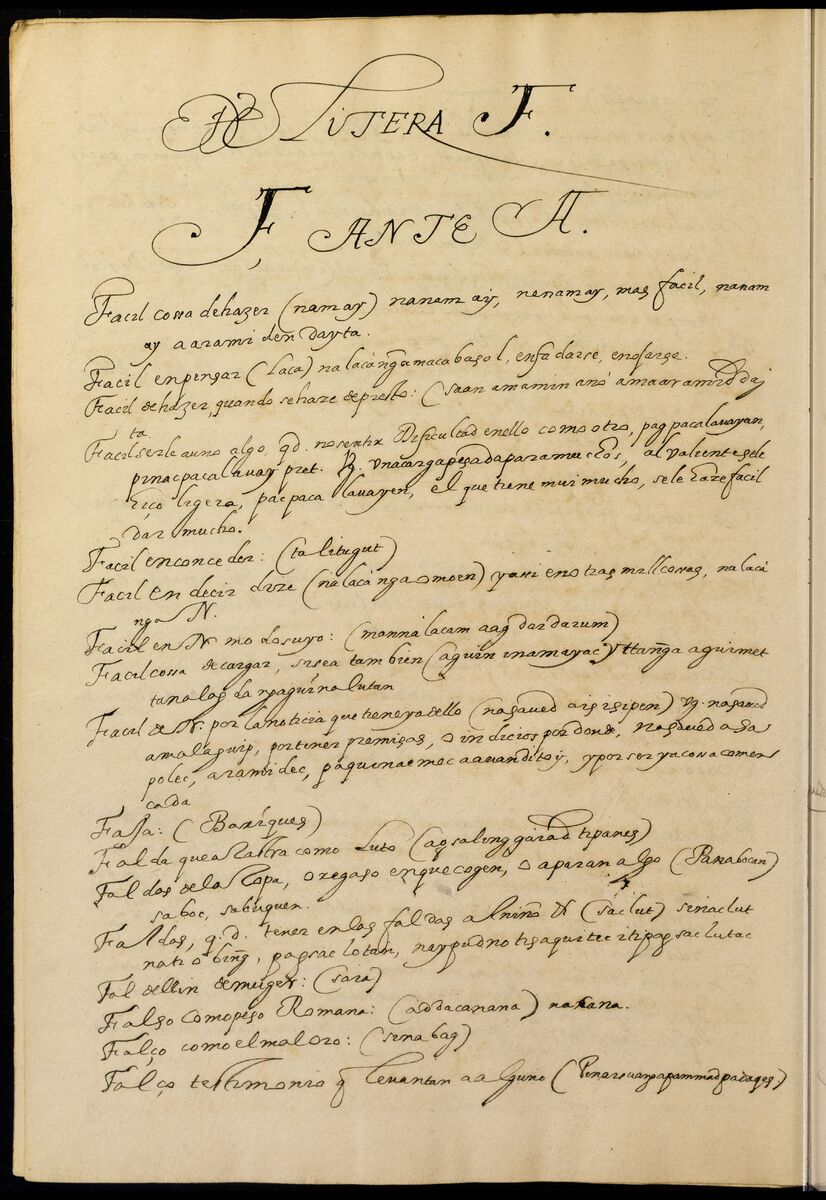 DE LITERA F.
F, ANTE A.
Facil cossa de hazer (namay) nanam ay, nenamay, mas facil, nanam
ay a arami den dayta.
Facil en pensar (Laca) na lacanga maca bagol, enfadarse, enojarse.
Facil de hazer, quando se haze de presto: (saan amamin anó ama aramid daj
ta.
Facil serle a uno algo, q.d. no sentir dificultad en ello como otro, pag paca lauayan,
pinacpaca lauay pret. Vg. una carga pesada para muchos, al valiente se le
hiço ligera, pacpaca lauayen, el que tiene mui mucho, se le haze facil
dar mucho.
Facil en conceder: (talitugut)
Facil en decir dize (nalacá nga omoen) y assi en otras mill cossas, na lacá
nga N.
Facil en N. modo suyo: (manna lacam aag dar darum)
Facil cossa de cargar, si sea tambien (aguin inamayac yttanga aguimet
tanalag da
Facil de N. por la noticia que tiene ya dello (nasaued aisisipen) Vg. nasaued
amalaguip, por tener premisas, o indicios por donde, nasaued a sa
polec, aramidec, paquinaemec aauanditoy, y por ser ya cossa comen
çada
Faja: (Bariques)
Falda que arrastra como Luto (agsalinggárad tipanes)
Faldas de la Ropa, o regaso en que cogen, o aparan algo (Panabocan)
saboc, sabuquen.
Faldas, q.d. tener en las faldas al niño & (saclut) sinaclut
nati o bing, pagsac lotan, nay pudno tisaquitec itipagsaclutac
Faldellin de muger: (sara)
Falso como peso Romana: (addacanana) nakana.
Falço como el mal oro: (sinabag)
Falço testimonio q levantan a alguno